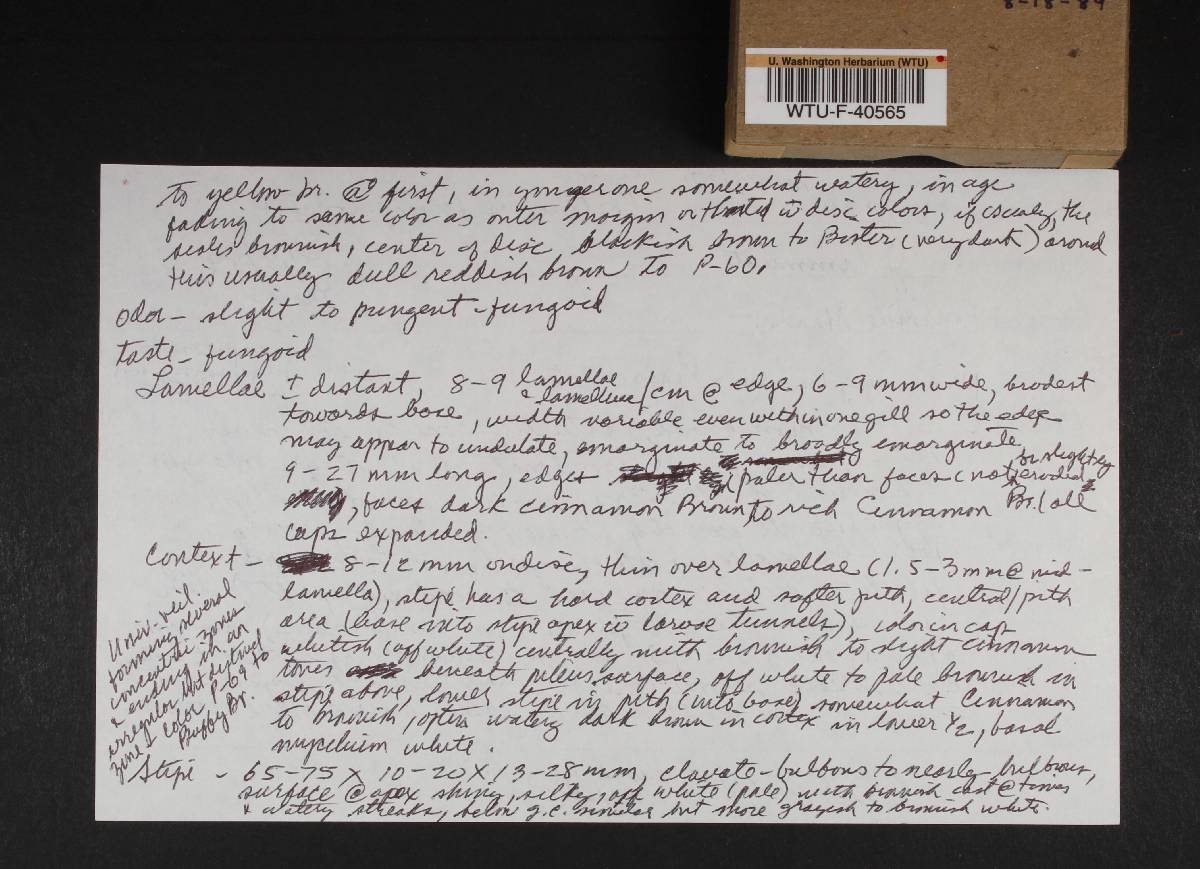 8-18-89
U. Washington Herbarium (WTU)
WTU-F-40565
to yellow br. @ first, in younger one somewhat watery, in age
fading to same color as outer margin or disc colors, if scaly, the
scales brownish, center of disc blackish brown to Bister (very dark) around
this usually dull reddish brown to P-60.
odor - slight to pungent-fungoid
taste - fungoid
Lamellae ± distant, 8-9 lamellae & lamellulae/cm @ edge, 6-9 mm wide, brodest
towards base, width variable even within one gill so the edge
may appear to undulate, emarginate to broadly emarginate,
9-27 mm long, edges paler than faces (not or slightly eroded)
, faces dark cinnamon Brown to rich Cinnamon Br. (all
caps expanded.
Context - 8-12 mm on disc, thin over lamellae (1.5-3 mm @ mid-
lamella), stipe has a hard cortex and softer pith, central/pith
area (base into stipe apex w larvae tunnels), color in cap
whitish (off white) centrally with brownish to slight cinnamon
tones beneath pileus surface, off white to pale brownish in
stipe above, lower stipe in pith (into base) somewhat Cinnamon
to brownish, often watery dark brown in cortex in lower ½, basal
mycelium white.
Univ. veil.
forming several
concentric zones
& ending in an
irregular but distinct
zone ± color P-69 to
Buffy Br.
Stipe - 65-75 X 10-20 X 13-28 mm, clavate-bulbous to nearly bulbous,
surface @ apex shiny, silky, off white (pale) with brownish cast @ times
& watery streaks, below g.c. similar but more grayish to brownish white.